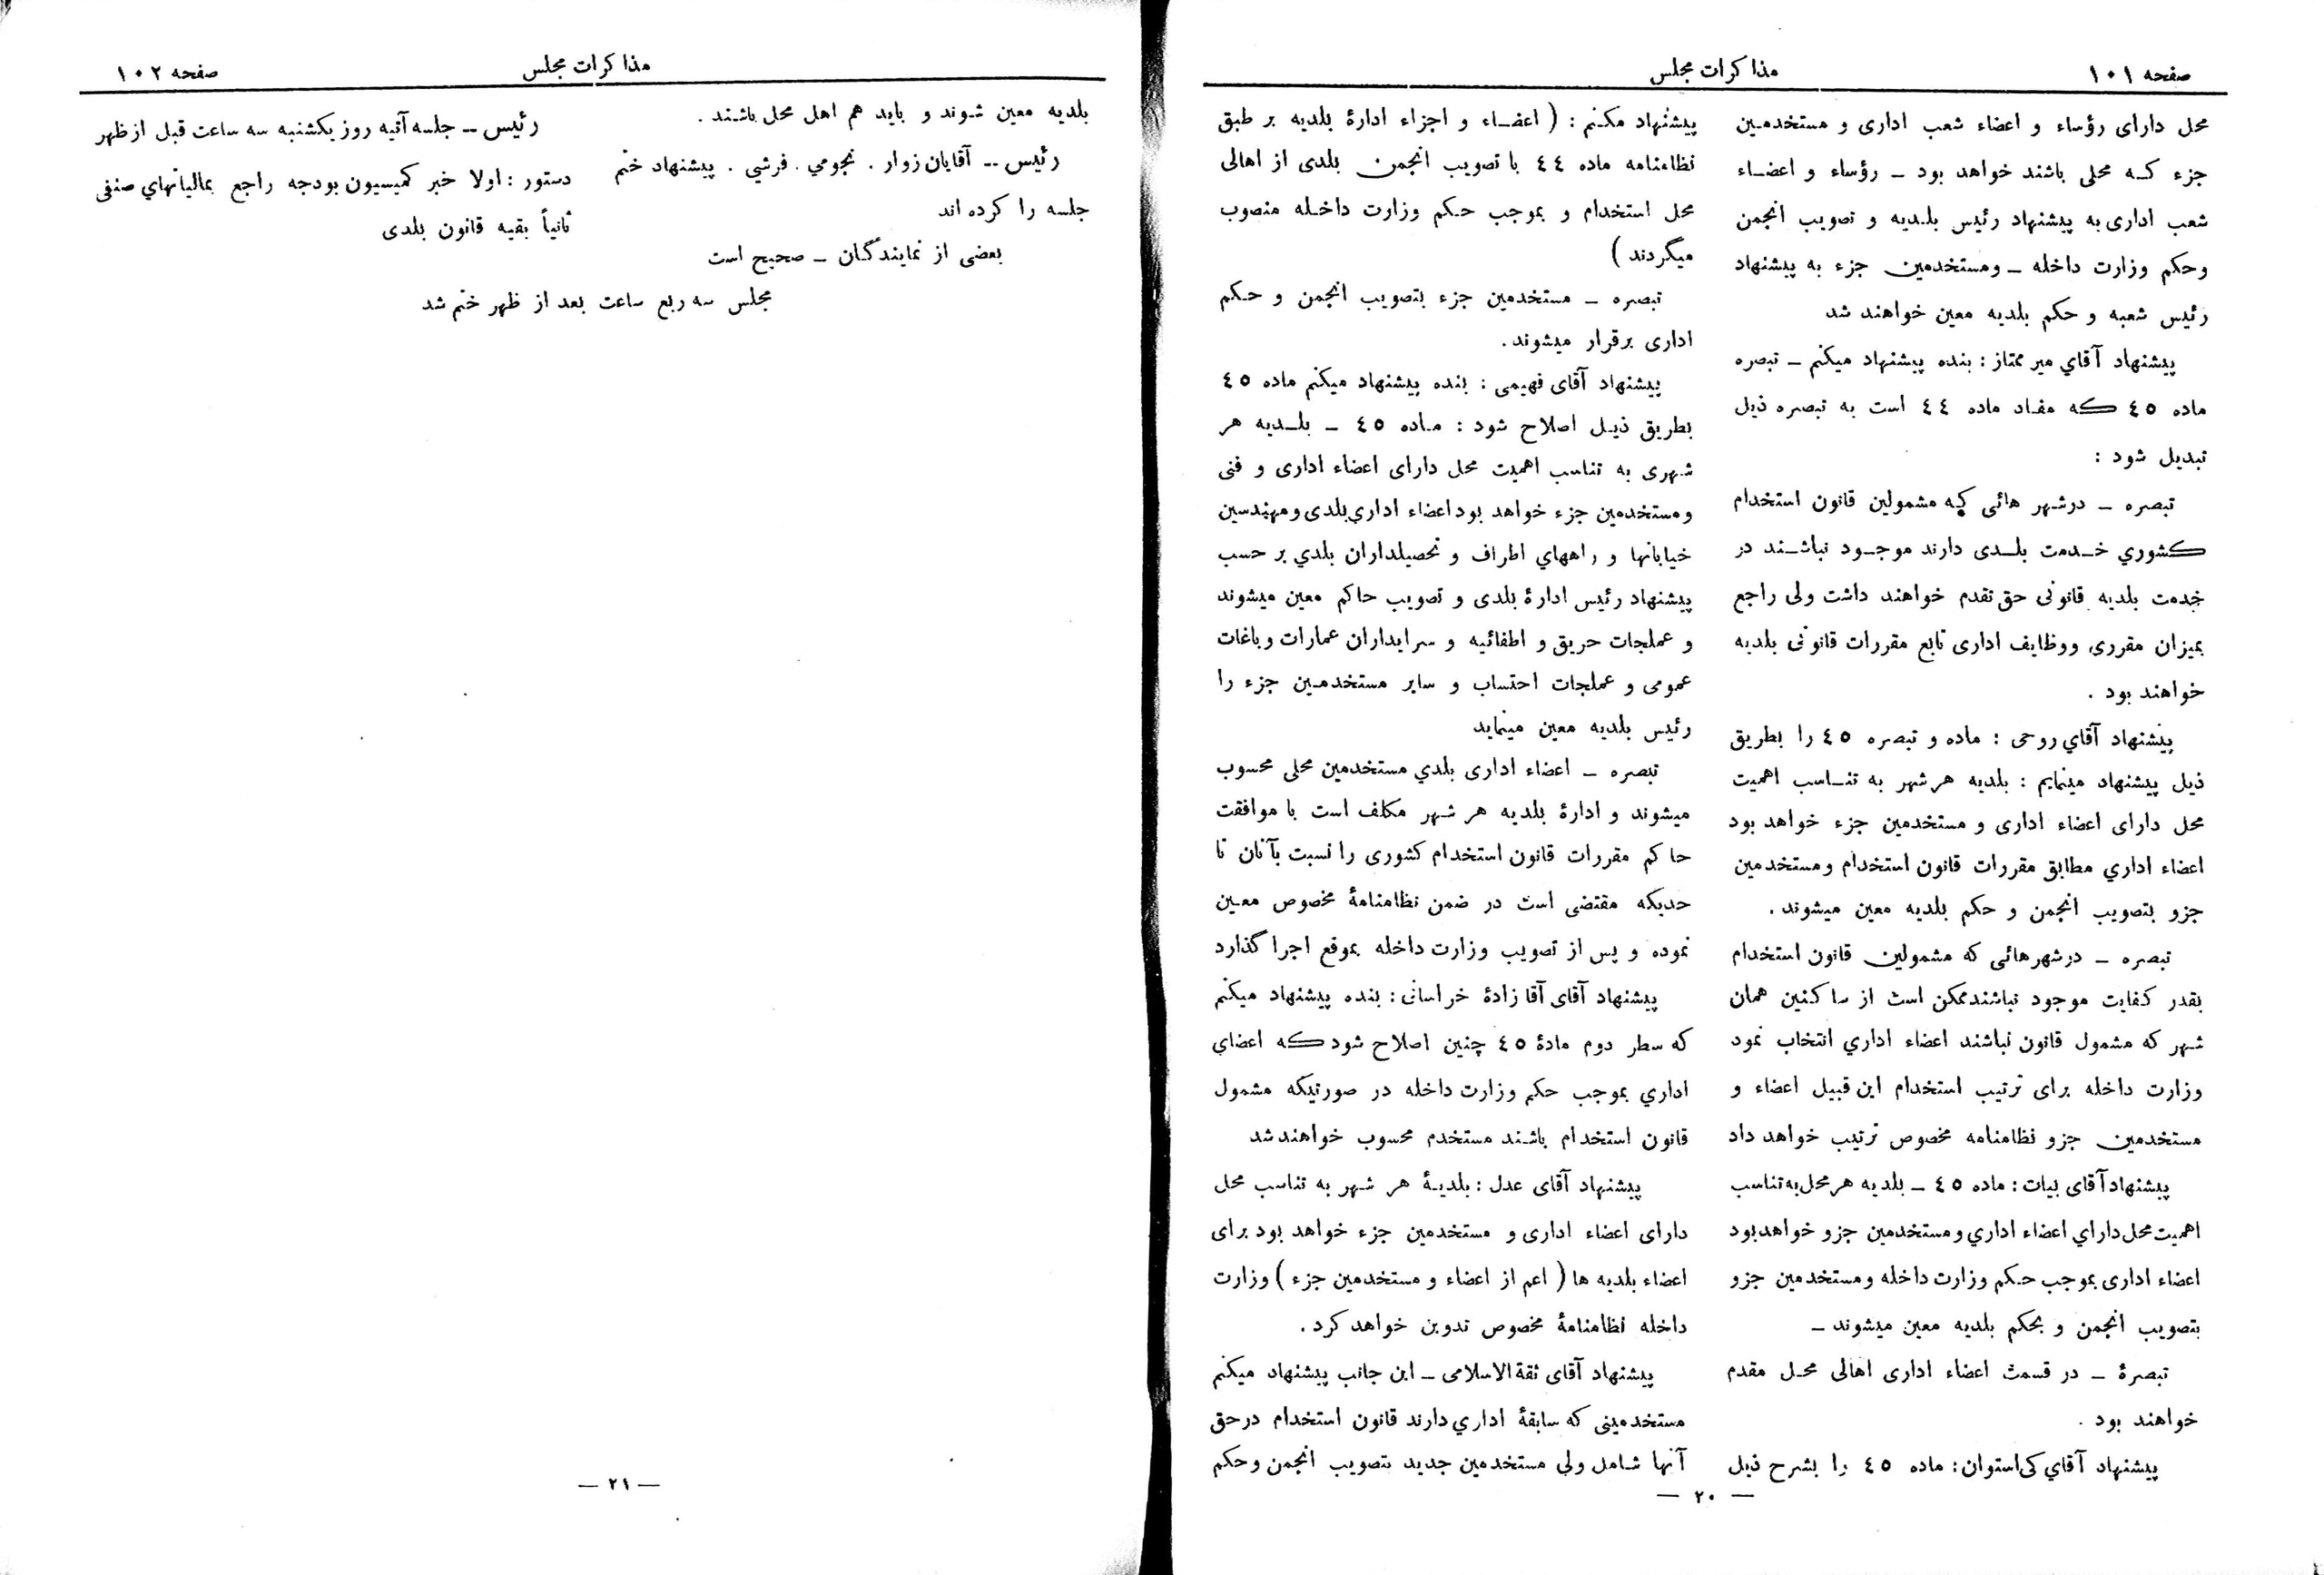 صفحه ۱۰۱
مذاکرات مجلس
محل دارای رؤساء و اعضاء شعب اداری و مستخدمین
جزء که محلی باشند خواهد بود ـ رؤساء و اعضاء
شعب اداری به پیشنهاد رئیس بلدیه و تصویب انجمن
وحکم وزارت داخله ـ ومستخدمین جزء به پیشنهاد
رئیس شعبه و حکم بلدیه معین خواهند شد
پیشنهاد آقاي میر ممتاز : بنده پیشنهاد میکنم ـ تبصره
ماده ٤٥ که مفاد ماده ٤٤ است به تبصره ذیل
تبدیل شود :
تبصره ـ درشهر هائی که مشمولین قانون استخدام
کشوري خدمت بلدی دارند موجود نباشند در
خدمت بلدیه قانونی حق تقدم خواهند داشت ولی راجع
بمیزان مقرری ووظایف اداری تابع مقررات قانونی بلدیه
خواهند بود .
پیشنهاد آقاي روحی : ماده و تبصره ٤٥ را بطریق
ذیل پیشنهاد مینمایم : بلدیه هر شهر به تناسب اهمیت
محل دارای اعضاء اداری و مستخدمین جزء خواهد بود
اعضاء اداري مطابق مقررات قانون استخدام ومستخدمین
جزو بتصویب انجمن و حکم بلدیه معین میشوند .
تبصره ـ درشهرهائی که مشمولین قانون استخدام
بقدر کفایت موجود نباشند ممکن است از ساکنین همان
شهر که مشمول قانون نباشند اعضاء اداري انتخاب نمود
وزارت داخله برای ترتیب استخدام این قبیل اعضاء و
مستخدمین جزو نظامنامه مخصوص ترتیب خواهد داد
پیشنهاد آقای بیات : ماده ٤٥ ـ بلدیه هر محل به تناسب
اهمیت محل داراي اعضاء اداري ومستخدمین جزو خواهد بود
اعضاء اداری بموجب حکم وزارت داخله ومستخدمین جزو
بتصویب انجمن و بحکم بلدیه معین میشوند ـ
تبصرۀ ـ در قسمت اعضاء اداری اهالی محل مقدم
خواهند بود .
پیشنهاد آقاي کی استوان : ماده ٤٥ را بشرح ذیل
پیشنهاد مکنم : ( اعضاء و اجزاء ادارۀ بلدیه بر طبق
نظامنامه ماده ٤٤ با تصویب انجمن بلدی از اهالی
محل استخدام و بموجب حکم وزارت داخله منصوب
میگردند )
تبصره ـ مستخدمین جزء بتصویب انجمن و حکم
اداری برقرار میشوند .
پیشنهاد آقای فهیمی : بنده پیشنهاد میکنم ماده ٤٥
بطریق ذیل اصلاح شود : ماده ٤٥ ـ بلدیه هر
شهری به تناسب اهمیت محل دارای اعضاء اداری و فنی
ومستخدمین جزء خواهد بود اعضاء اداري بلدی ومهندسین
خیابانها و راههاي اطراف و تحصیلداران بلدي بر حسب
پیشنهاد رئیس ادارۀ بلدی و تصویب حاکم معین میشوند
و عملجات حریق و اطفائیه و سرایداران عمارات و باغات
عمومی و عملجات احتساب و سایر مستخدمین جزء را
رئیس بلدیه معین مینماید
تبصره ـ اعضاء اداری بلدي مستخدمین محلی محسوب
میشوند و ادارۀ بلدیه هر شهر مکلف است با موافقت
حاکم مقررات قانون استخدام کشوری را نسبت بآنان تا
حدیکه مقتضی است در ضمن نظامنامۀ مخصوص معین
نموده و پس از تصویب وزارت داخله بموقع اجرا گذارد
پیشنهاد آقای آقا زادۀ خراسانی : بنده پیشنهاد میکنم
که سطر دوم مادۀ ٤٥ چنین اصلاح شود که اعضاي
اداري بموجب حکم وزارت داخله در صورتیکه مشمول
قانون استخدام باشند مستخدم محسوب خواهند شد
پیشنهاد آقای عدل : بلدیۀ هر شهر به تناسب محل
دارای اعضاء اداری و مستخدمین جزء خواهد بود برای
اعضاء بلدیه ها ( اعم از اعضاء و مستخدمین جزء ) وزارت
داخله نظامنامۀ مخصوص تدوین خواهد کرد .
پیشنهاد آقای ثقة الاسلامی ـ این جانب پیشنهاد میکنم
مستخدمینی که سابقۀ اداري دارند قانون استخدام درحق
آنها شامل ولی مستخدمین جدید بتصویب انجمن وحکم
— ۲۰ —
مذاکرات مجلس
صفحه ۱۰۲
بلدیه معین شوند و باید هم اهل محل باشند .
رئیس ــ آقایان زوار . نجومي . فرشي . پیشنهاد ختم
جلسه را کرده اند
بعضی از نمایندگان ـ صحیح است
رئیس ــ جلسه آتیه روز یکشنبه سه ساعت قبل از ظهر
دستور : اولا خبر کمیسیون بودجه راجع بمالیاتهاي صنفی
ثانیاً بقیه قانون بلدی
مجلس سه ربع ساعت بعد از ظهر ختم شد
— ۲۱ —